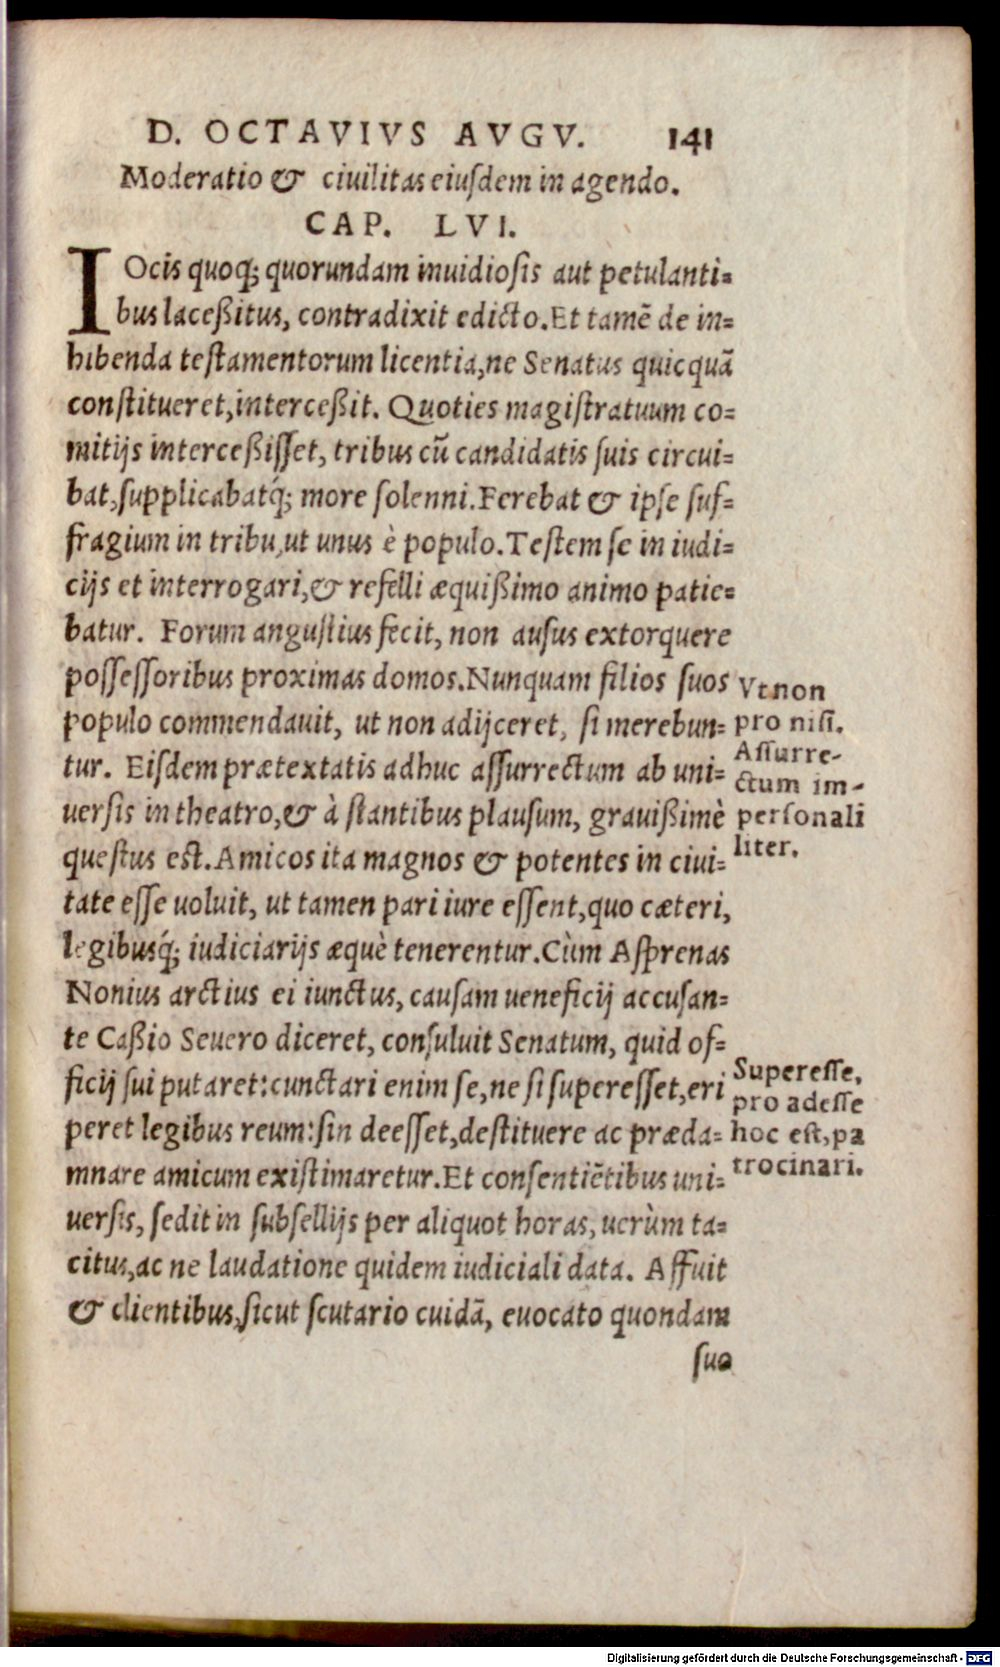 D. OCTAVIVS AVGV. 141
Moderatio & ciuilitas eiusdem in agendo.
CAP. LVI.
IOcis quoq́; quorundam inuidiosis aut petulanti=
bus laceßitus, contradixit edicto. Et tamē de in=
hibenda testamentorum licentia, ne Senatus quicquā
constitueret, interceßit. Quoties magistratuum co=
mitijs interceßisset, tribus cū candidatis suis circui=
bat, supplicabatq́; more solenni. Ferebat & ipse suf=
fragium in tribu, ut unus è populo. Testem se in iudi=
cijs et interrogari, & refelli æquißimo animo patie=
batur. Forum angustius fecit, non ausus extorquere
possessoribus proximas domos. Nunquam filios suos
populo commendauit, ut non adijceret, si merebun=
tur. Eisdem prætextatis adhuc assurrectum ab uni=
uersis in theatro, & à stantibus plausum, grauißimè
questus est. Amicos ita magnos & potentes in ciui=
tate esse uoluit, ut tamen pari iure essent, quo cæteri,
legibusq́; iudiciarijs æquè tenerentur. Cùm Asprenas
Nonius arctius ei iunctus, causam ueneficij accusan=
te Caßio Seuero diceret, consuluit Senatum, quid of=
ficij sui putaret: cunctari enim se, ne si superesset, eri
peret legibus reum: sin deesset, destituere ac præda=
mnare amicum existimaretur. Et consentiētibus uni=
uersis, sedit in subsellijs per aliquot horas, uerùm ta=
citus, ac ne laudatione quidem iudiciali data. Affuit
& clientibus, sicut scutario cuidā, euocato quondam
suo
Vt non
pro nisi.
Assurre-
ctum im-
personali
liter.
Superesse,
pro adesse
hoc est, pa
trocinari.
Digitalisierung gefördert durch die Deutsche Forschungsgemeinschaft - DFG